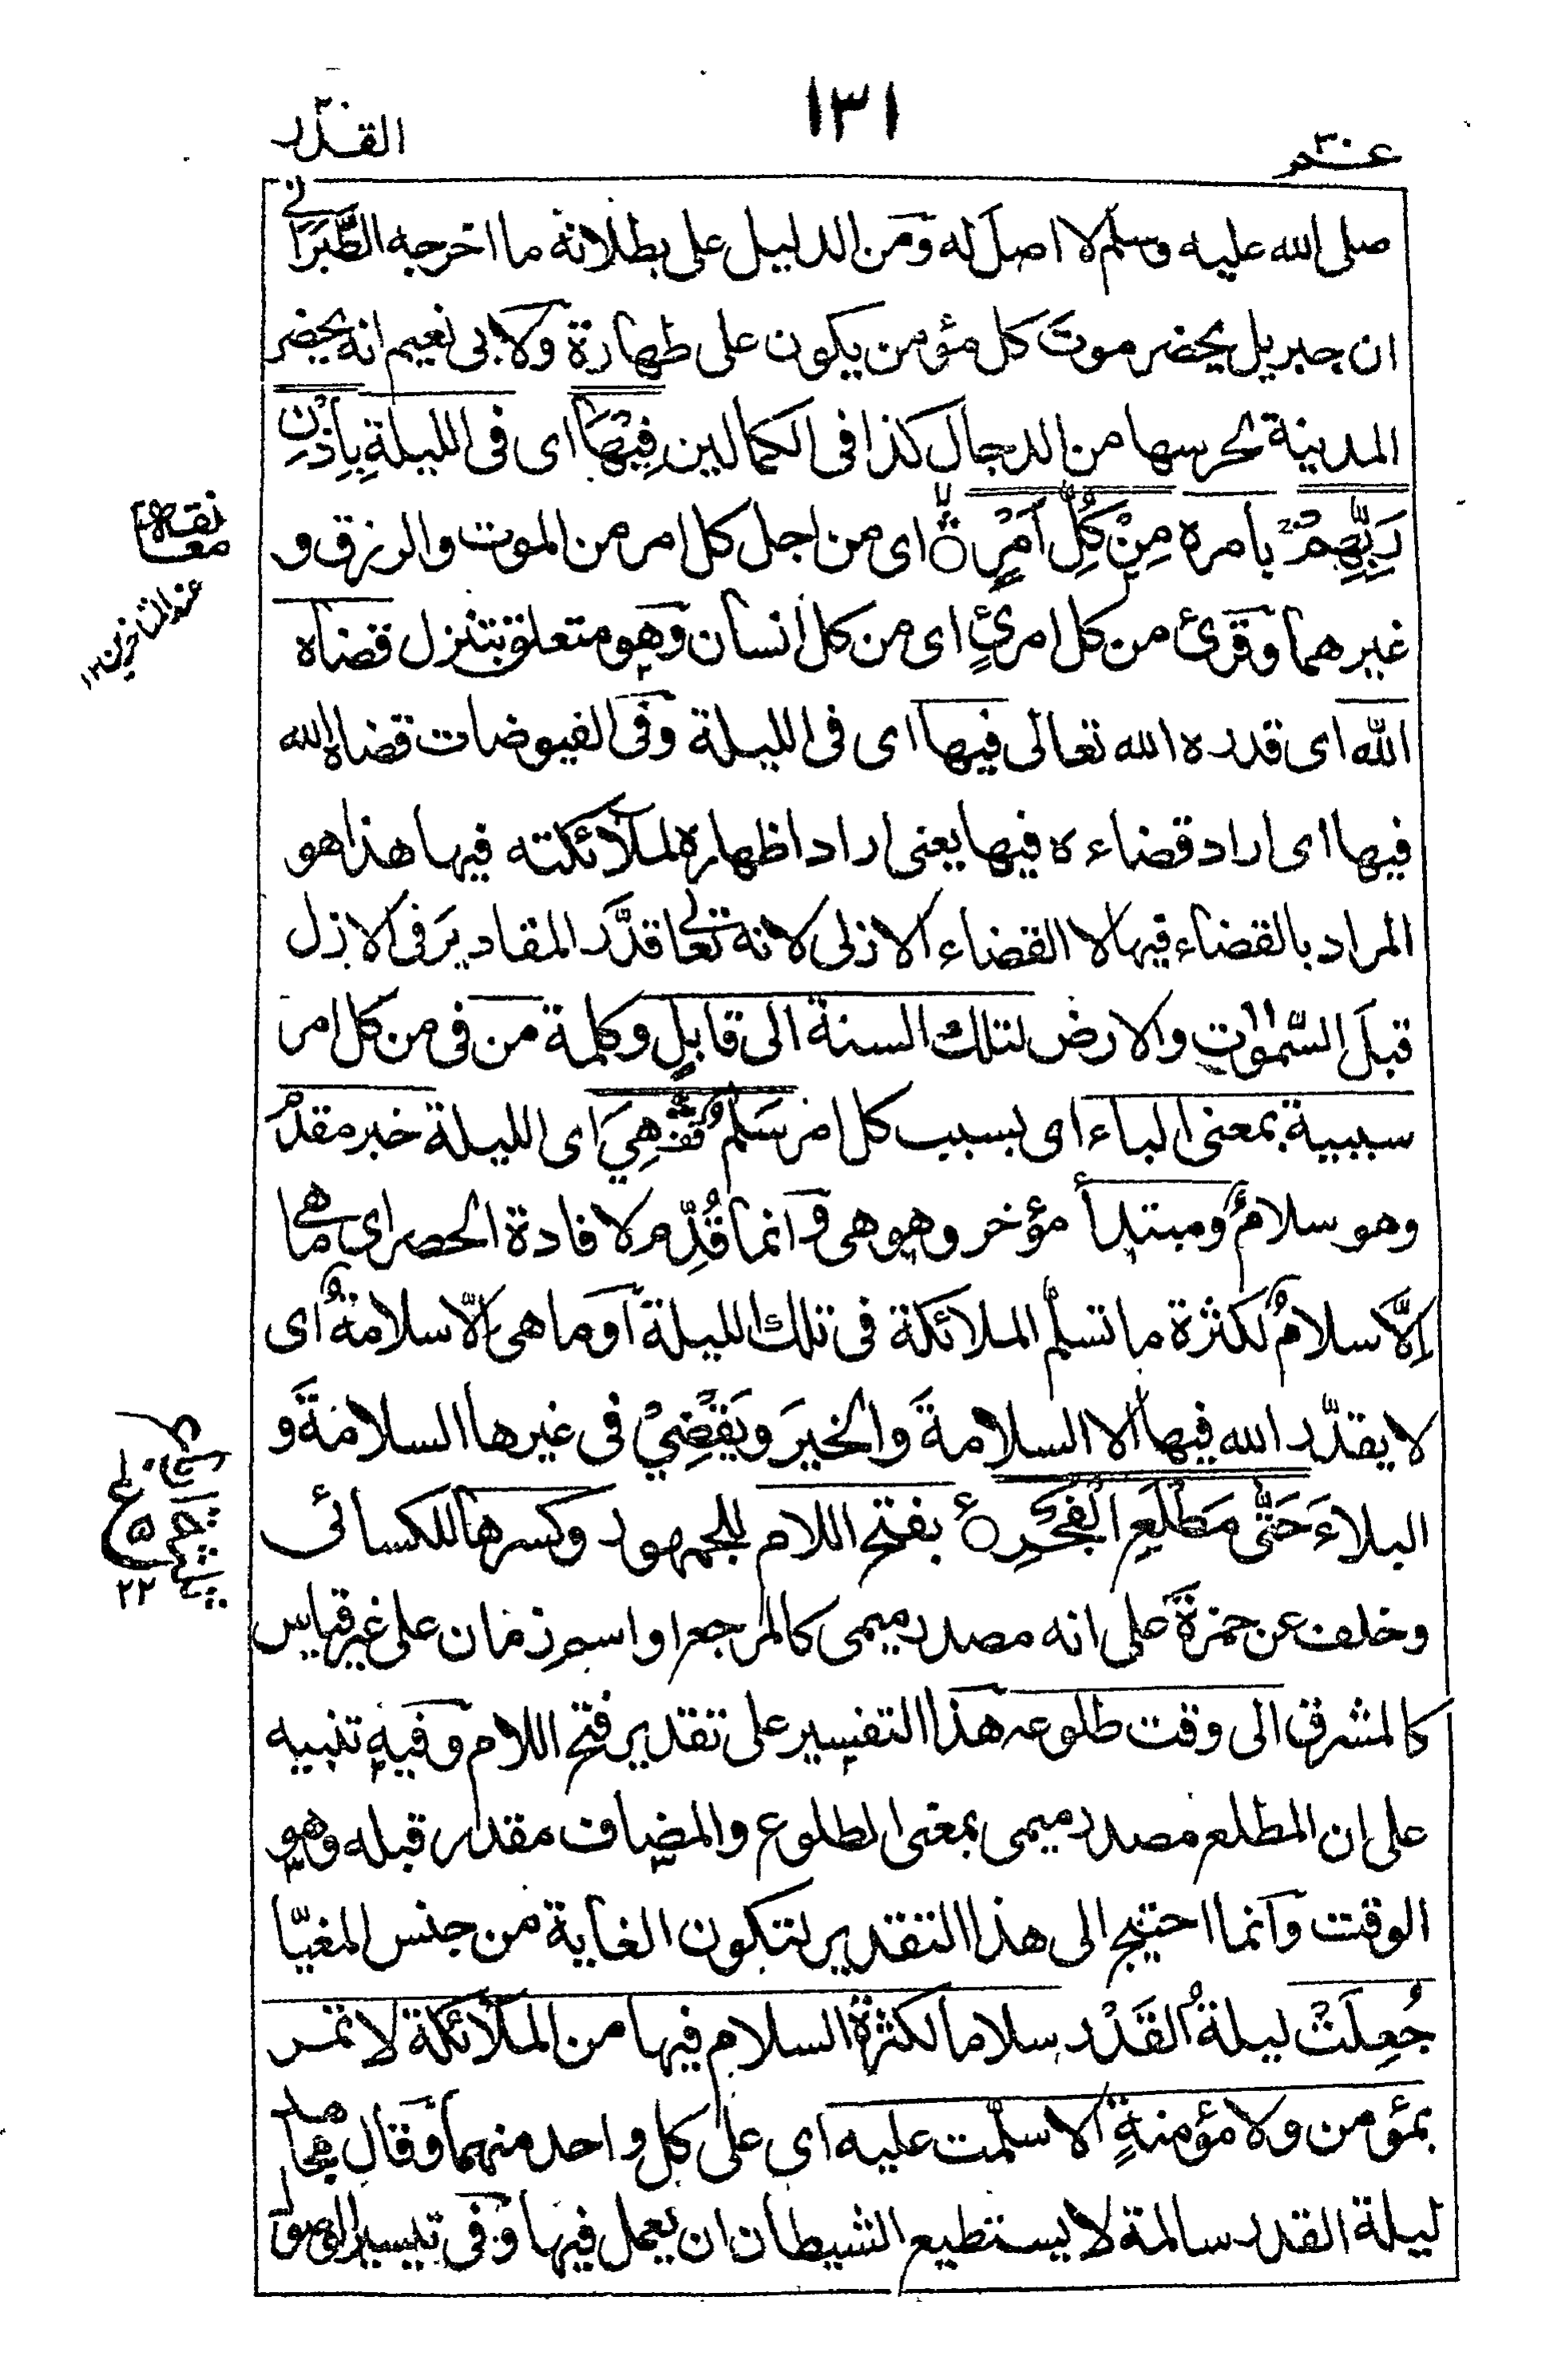 ١٣١
عم ٣٠
القدر
صلى الله عليه وسلم لا اصل له ومن الدليل على بطلانه ما اخرجه الطَّبَرانی
ان جبريل يحضر موتَ كل مؤمن يكون على طهارة ولابى نعيم انه يحضر
المدينة تحرسها من الدجال كذا فى الكمالين فِيْهَا اى فى الليلةِ بِاِذْنِ
رَبِّهِمْ بامره مِنْ كُلِّ اَمْرٍ اى من اجل كل امر من الموت والرزق و
غيرهما وقرئ من كل امرئٍ اى من كل انسان وهو متعلق بتنزل قضاه
الله اى قدره الله تعالى فيها اى فى الليلة وفى الفيوضات قضاه الله
فيها اى اراد قضاءه فيها يعنى اراد اظهاره لملائكته فيها هذا هو
المراد بالقضاء فيها لا القضاء الازلى لانه تعالى قدَّر المقادير فى الازل
قبلَ السّمٰوٰت والارض لتلك السنة الى قابلٍ وكلمة من فى من كل امر
سببية بمعنى الباء اى بسبب كل امر سَلٰمٌ هِيَ اى الليلة خبر مقدم
وهو سلامٌ ومبتدأ مؤخر وهو هى وانما قُدِّم لافادة الحصر اى ما هى
اِلَّا سلامٌ لكثرة ما تسلّم الملائكة فى تلك الليلة او ما هى الّا سلامةٌ اى
لا يقدّر الله فيها الا السلامةَ والخيرَ ويَقْضِيْ فى غيرها السلامةَ و
البلاءَ حَتّٰى مَطْلَعِ الْفَجْرِ بفتح اللام للجمهور وكسرها للكسائى
وخلف عن حمزة على انه مصدر ميمى كالمرجع او اسم زمان على غير قياس
كالمشرق الى وقت طلوعه هذا التفسير على تقدير فتح اللام وفيه تنبيه
على ان المطلع مصدر ميمى بمعنى الطلوع والمضاف مقدر قبله وهو
الوقت وانما احتيج الى هذا التقدير لتكون الغاية من جنس المغيّا
جُعِلَتْ ليلةُ القَدْر سلاما لكثرة السلام فيها من الملائكة لا تمر
بمؤمن ولا مؤمنةٍ الا سلّمت عليه اى على كل واحد منهما وقال مجاهد
ليلة القدر سالمة لا يستطيع الشيطان ان يعمل فيها وفى تيسير الوصول
معانقة
عند المتاخرين ١٢
ع
٢٢